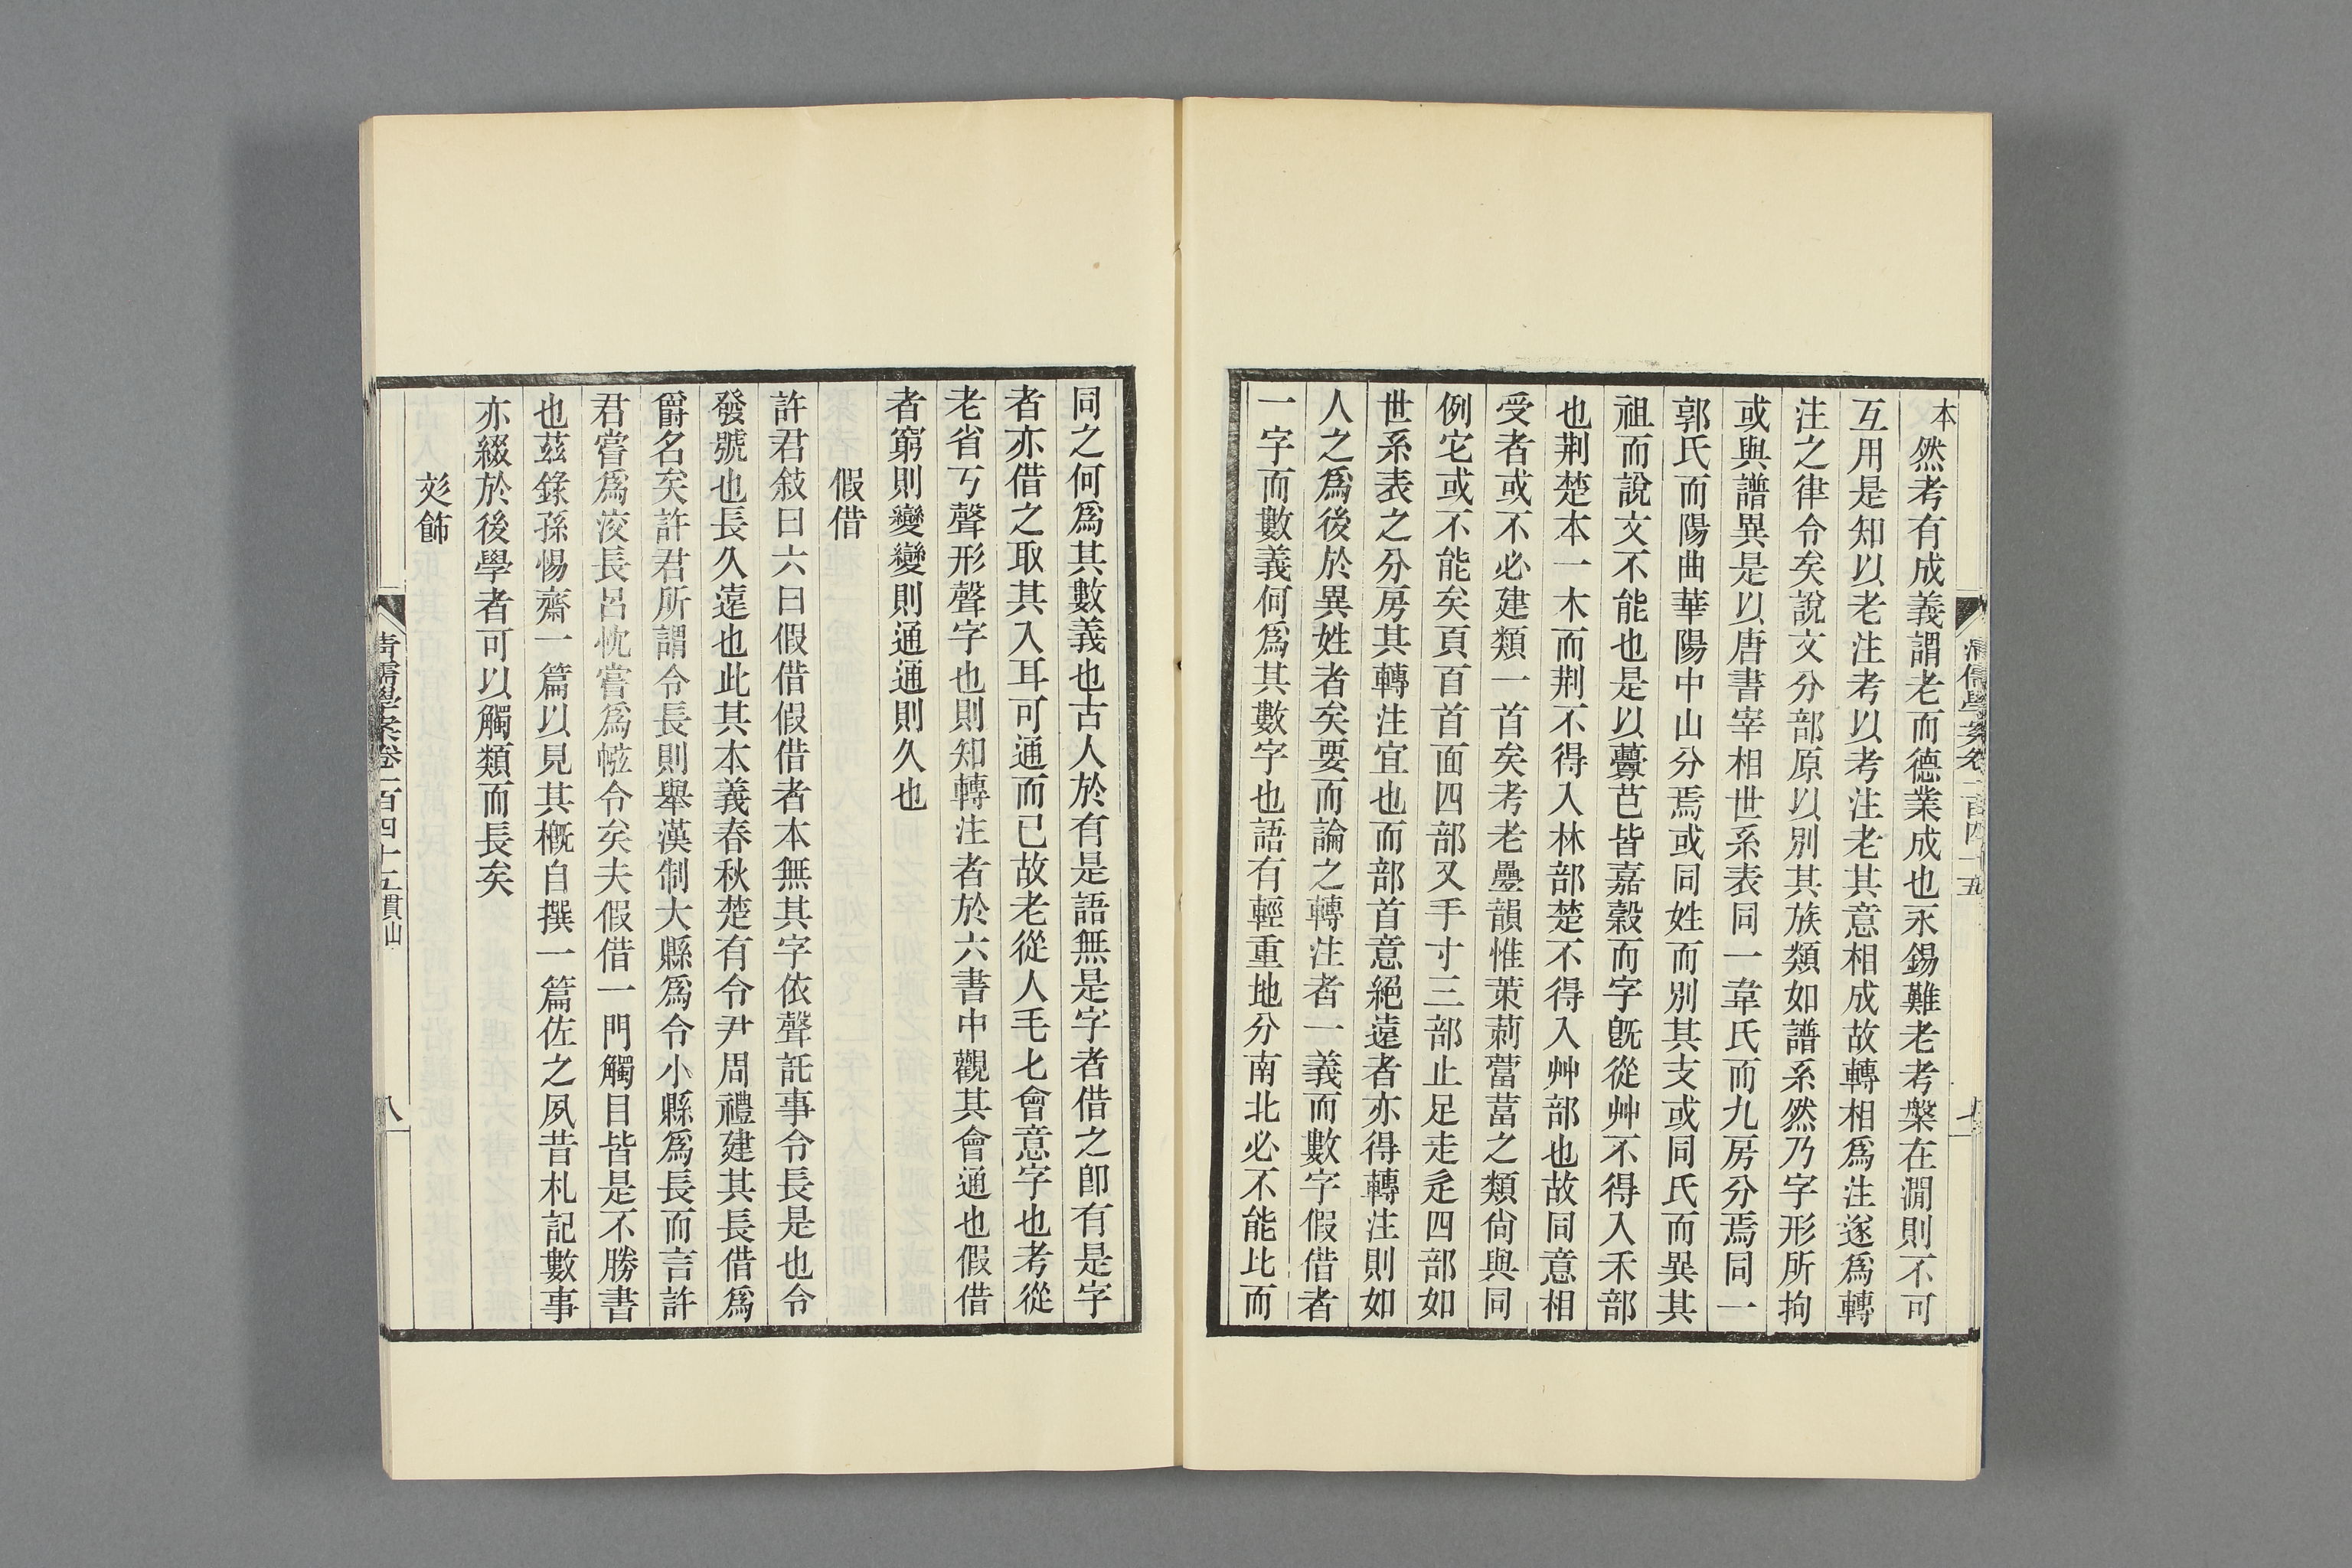 清儒學案卷一百四十五
七
本
然考有成義謂老而德業成也永錫難老考槃在澗則不可
互用是知以老注考以考注老其意相成故轉相爲注遂爲轉
注之律令矣說文分部原以別其族類如譜系然乃字形所拘
或與譜異是以唐書宰相世系表同一韋氏而九房分焉同一
郭氏而陽曲華陽中山分焉或同姓而別其支或同氏而異其
祖而說文不能也是以虋芑皆嘉穀而字旣從艸不得入禾部
也荆楚本一木而荆不得入林部楚不得入艸部也故同意相
受者或不必建類一首矣考老疊韻惟茦莿葍䔰之類尙與同
例它或不能矣頁百首面四部又手寸三部止足走辵四部如
世系表之分房其轉注宜也而部首意絕遠者亦得轉注則如
人之爲後於異姓者矣要而論之轉注者一義而數字假借者
一字而數義何爲其數字也語有輕重地分南北必不能比而
同之何爲其數義也古人於有是語無是字者借之卽有是字
者亦借之取其入耳可通而已故老從人毛匕會意字也考從
老省丂聲形聲字也則知轉注者於六書中觀其會通也假借
者窮則變變則通通則久也
假借
許君敍曰六曰假借假借者本無其字依聲託事令長是也令
發號也長久遠也此其本義春秋楚有令尹周禮建其長借爲
爵名矣許君所謂令長則舉漢制大縣爲令小縣爲長而言許
君嘗爲洨長呂忱嘗爲㡉令矣夫假借一門觸目皆是不勝書
也茲錄孫惕齋一篇以見其概自撰一篇佐之夙昔札記數事
亦綴於後學者可以觸類而長矣
彣飾
清儒學案卷一百四十五貫山
八